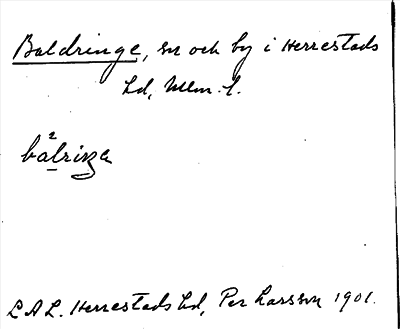 Baldringe, sn och by i Herrestads
hd, Mlm. l.
ba²lriŋe
L.A.L. Herrestads hd, Per Larsson 1901.